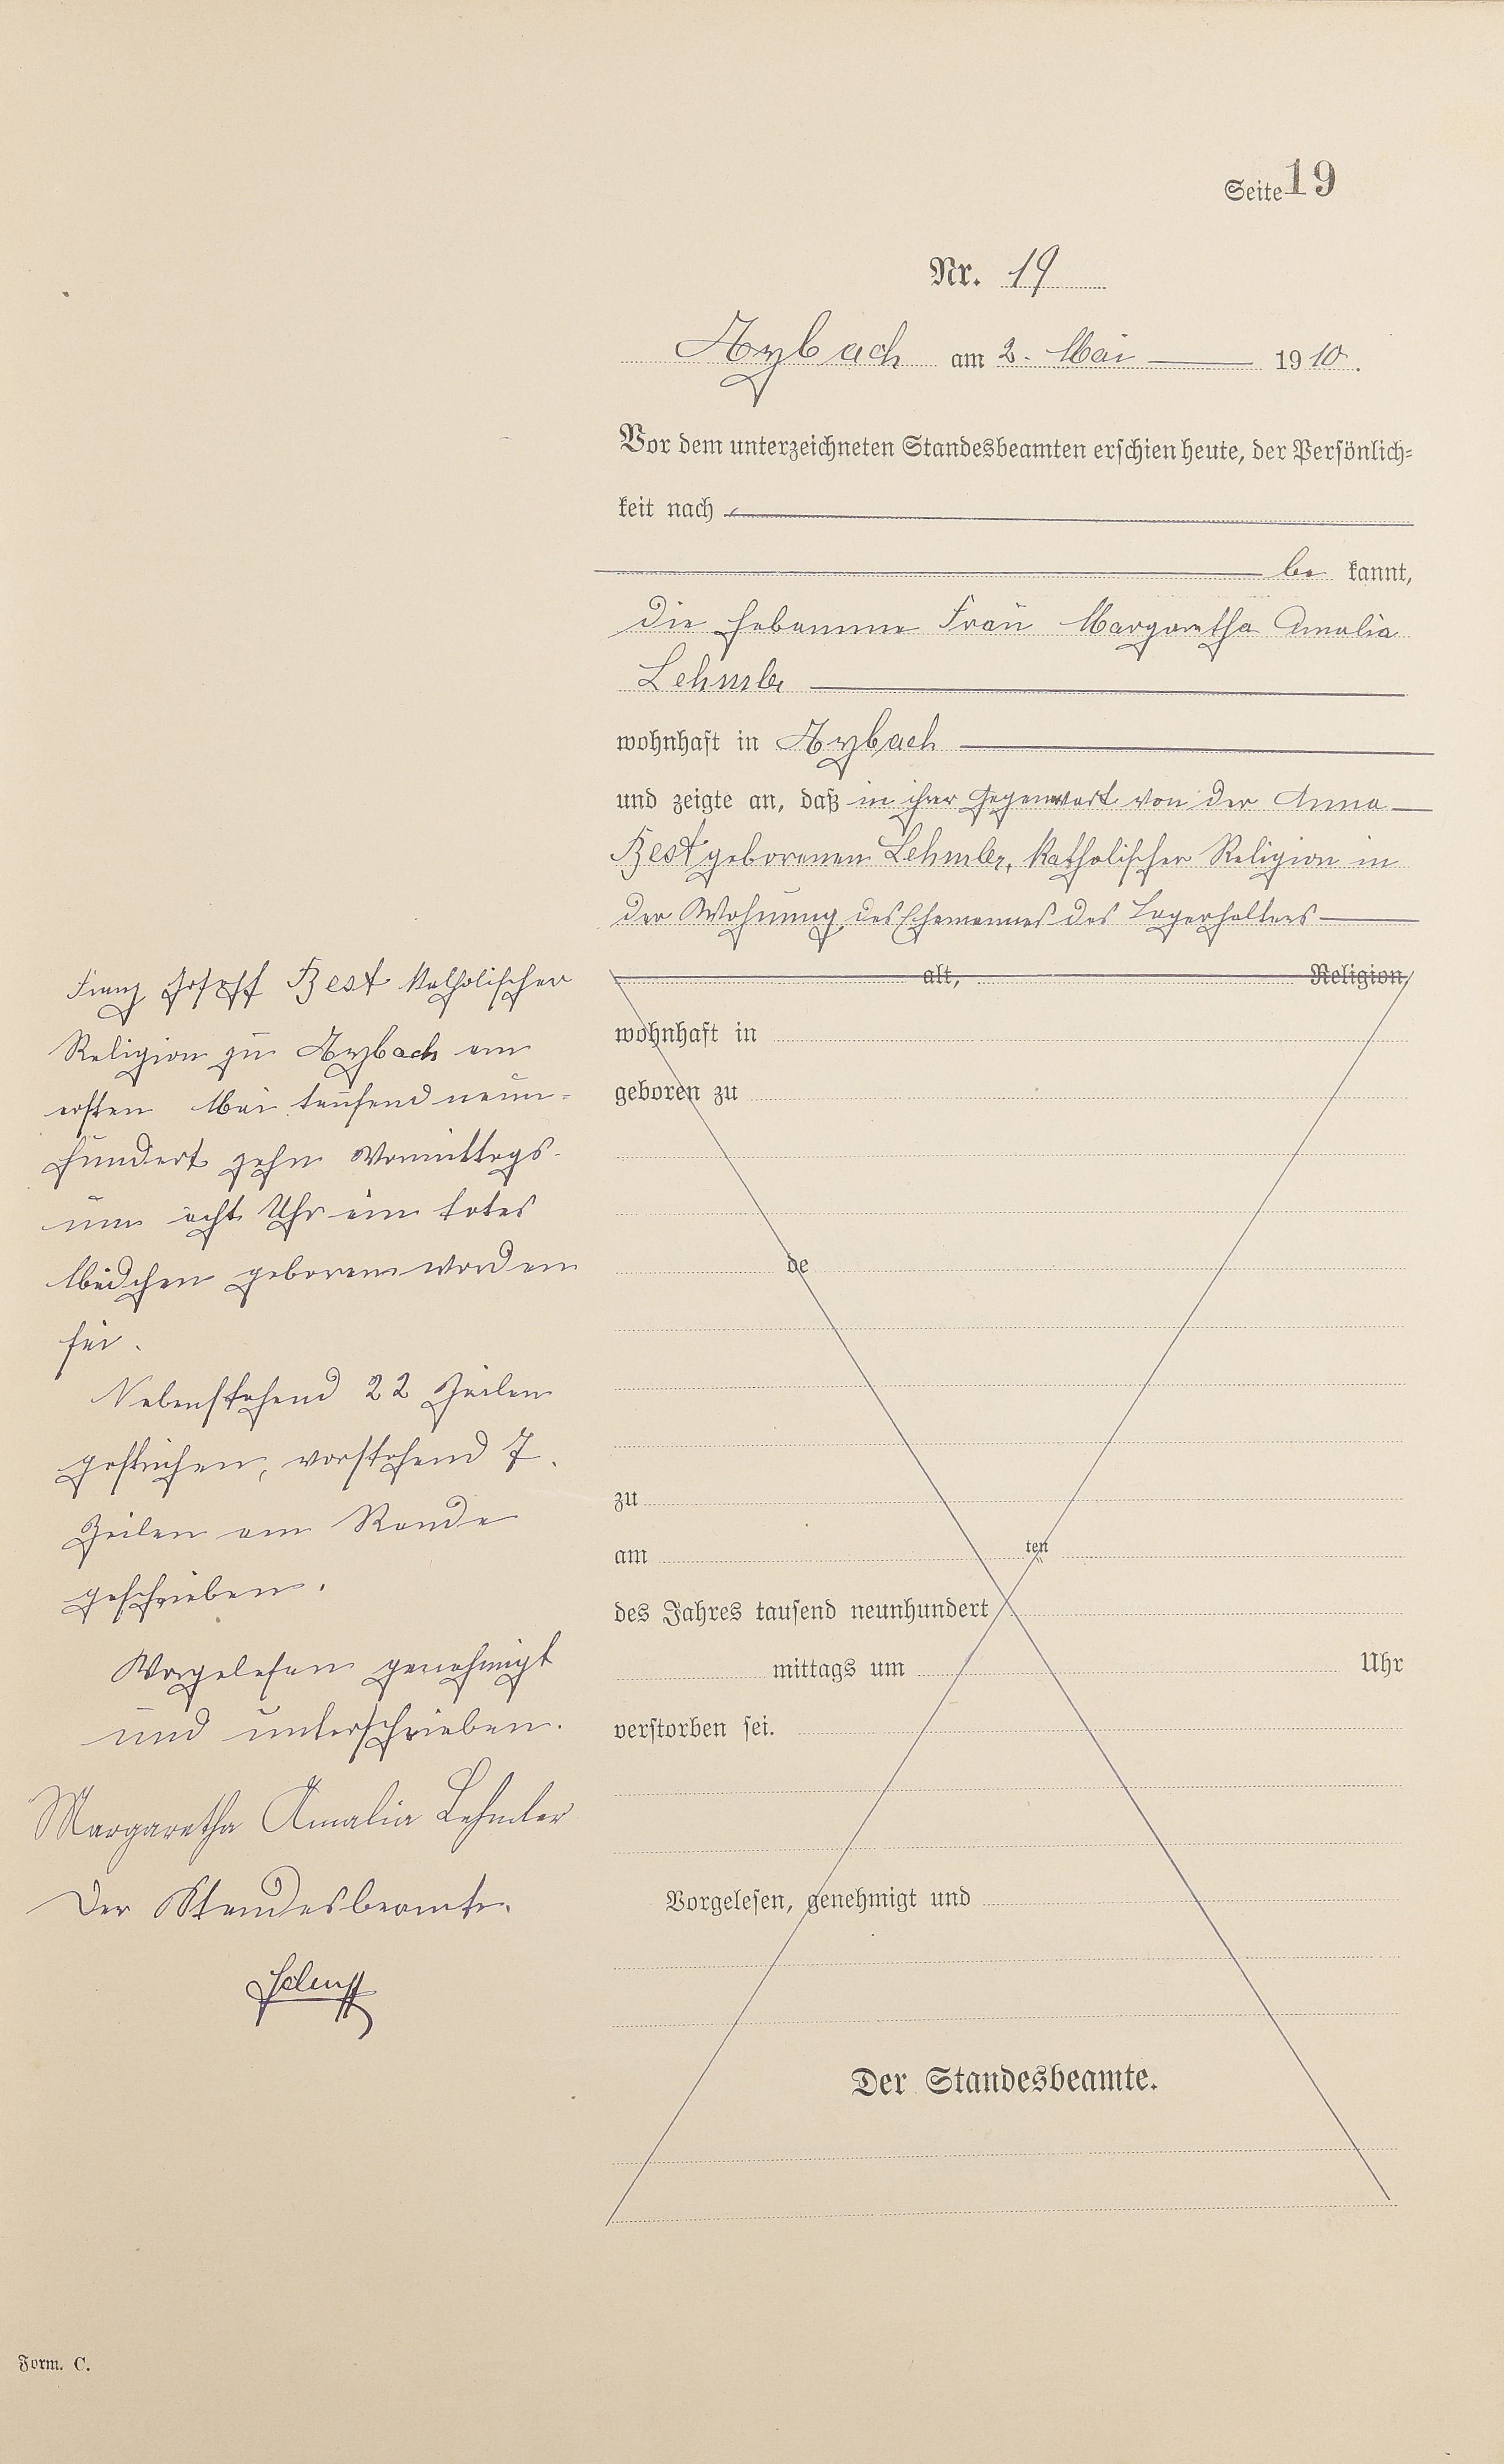 Seite 19
Nr. 19
Aybach am 2. Mai 1910.
Vor dem unterzeichneten Standesbeamten erschien heute, der Persönlich-
keit nach
be kannt,
die Hebamme Frau Margaretha Amalia
Lehmler
wohnhaft in Aybach
und zeigte an, daß in ihrer Gegenwart von der Anna
Best geborenen Lehmler, katholischer Religion in
der Wohnung des Ehemannes des Lagerhalters
alt, Religion,
Franz Joseph Best katholischer
Religion zu Aybach am
ersten Mai tausend neun-
hundert zehn Vormittags
um acht Uhr ein totes
Mädchen geboren worden
sei.
Nebenstehend 22 Zeilen
gestrichen, vorstehend 7
Zeilen am Rande
geschrieben.
Vorgelesen genehmigt
und unterschrieben.
Margaretha Amalia Lehmler
Der Standesbeamte.
wohnhaft in
geboren zu
de
zu
am ten
des Jahres tausend neunhundert
mittags um Uhr
verstorben sei.
Vorgelesen, genehmigt und
Der Standesbeamte.
Form. C.